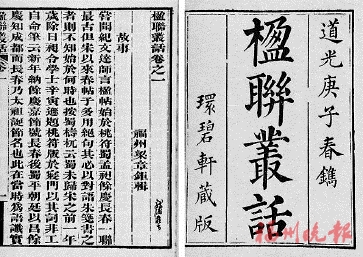 道光庚子春鐫
楹聯叢話
環碧軒藏版
楹聯叢話卷之一
福州梁章鉅輯
故事
嘗聞紀文達師言楹帖始於蜀孟昶餘慶長春一聯
最古但宋以來春帖子多用絕句其必以對語朱箋書之
者則不知始於何時也按蜀檮杌云蜀未歸宋之前一年
歲除日昶令學士辛寅遜題桃符版於寢門以其詞非工
自命筆云新年納餘慶嘉節號長春後蜀平朝廷以呂餘
慶知成都而長春乃太祖誕節名也此在當時爲語讖實
楹聯叢話
卷一
福州晚报